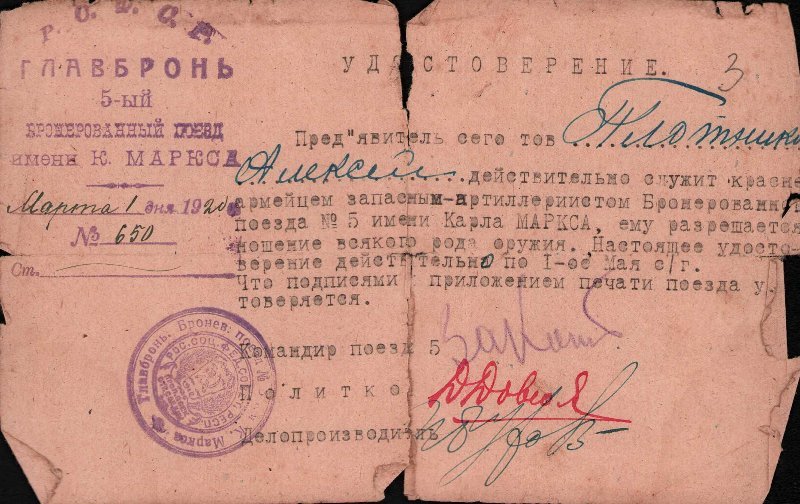 Р. О. Ф. С. Р.
ГЛАВБРОНЬ
5-ый
БРОНЕРОВАННЫЙ ПОЕЗД
имени К. МАРКСА
Марта 1 дня 1920
№ 650
Ст.
УДОСТОВЕРЕНИЕ. 3
Пред"явитель сего тов Плотнико
Алексей действительно служит красно
армейцем запасным-артиллериистом Бронерованн
поезда № 5 имени Карла МАРКСА, ему разрешается
ношение всякого рода оружия. Настоящее удосто-
верение действительно по 1-ое Мая с/г.
Что подписями приложением печати поезда у
товеряется.
Командир поезд 5
Политко
Делопроизводитель
Главбронь. Бронев. поезд № 5 К. Маркса
РОС. СОЦ. ФЕД. СОВ. РЕСП.